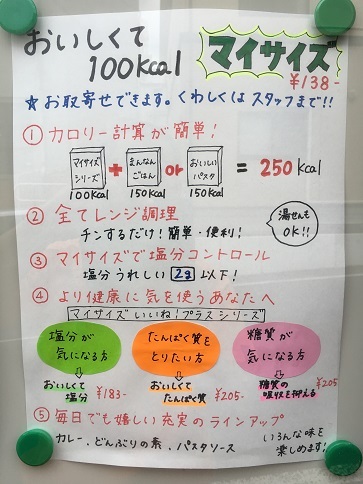 おいしくて
100Kcal
マイサイズ
¥138-
★お取寄せできます。くわしくはスタッフまで!!
① カロリー計算が簡単!
マイサイズ
シリーズ
100Kcal
+
まんなん
ごはん
150Kcal
or
おいしい
パスタ
150Kcal
= 250Kcal
② 全てレンジ調理
チンするだけ!簡単・便利!
湯せんも
OK!!
③ マイサイズで塩分コントロール
塩分うれしい 2g 以下!
④ より健康に気を使うあなたへ
マイサイズいいね!プラスシリーズ
塩分が
気になる方
たんぱく質を
とりたい方
糖質が
気になる方
おいしくて
塩分
¥183-
おいしくて
たんぱく質
¥205-
糖質の
吸収を抑える
¥205-
⑤ 毎日でも嬉しい充実のラインアップ
カレー、どんぶりの素、パスタソース
いろんな味を
楽しめます!